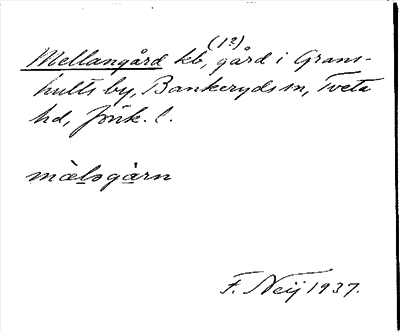 (1?)
Mellangård kb, gård i Grans-
hults by, Bankeryds sn, Tveta
hd, Jönk. l.
mälsgårn
F. Neij 1937.